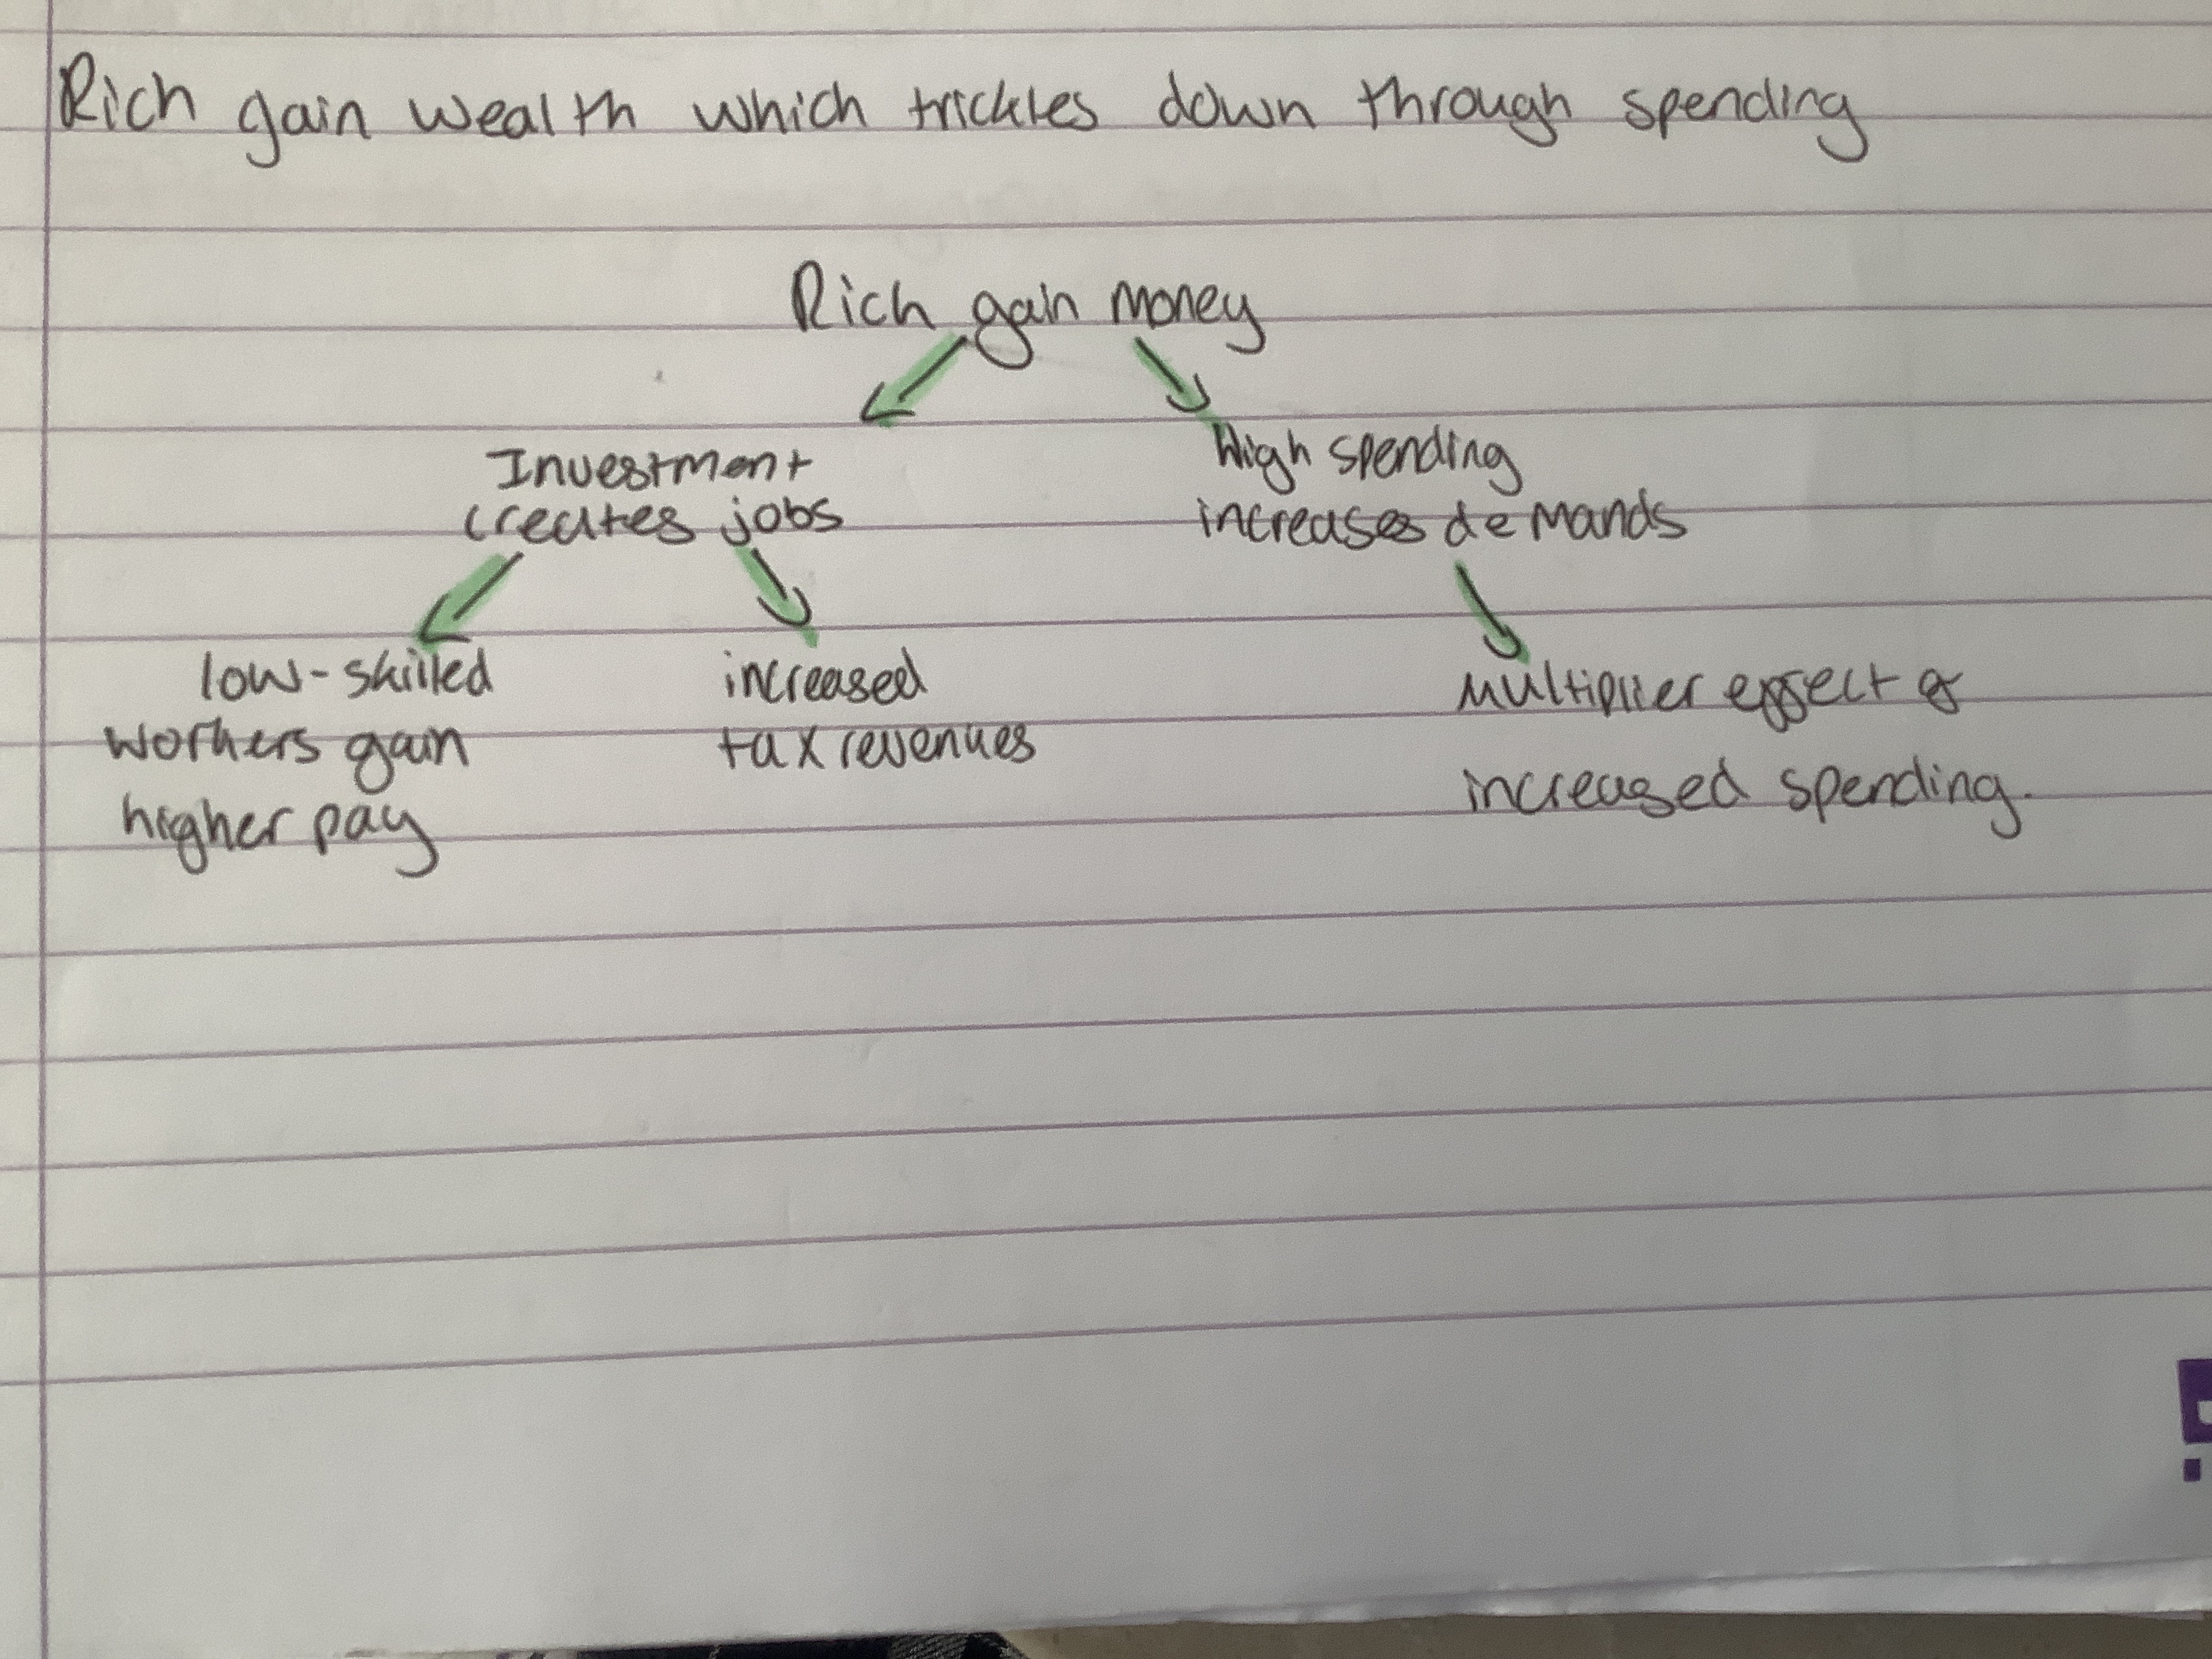 Rich gain wealth which trickles down through spending
Rich gain money
Investment
creates jobs
High spending
increases demands
low-skilled
workers gain
higher pay
increased
tax revenues
multiplier effect &
increased spending.